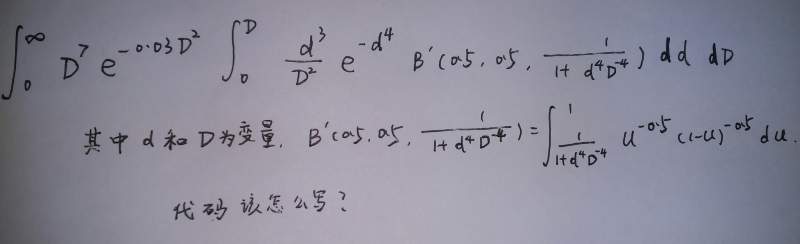 ∫₀^∞ D⁷ e^{-0.03D²} ∫₀^D \frac{d³}{D²} e^{-d⁴} B'(0.5, 0.5, \frac{1}{1+d⁴D⁻⁴}) dd dD
其中 d 和 D 为变量. B'(0.5, 0.5, \frac{1}{1+d⁴D⁻⁴}) = ∫_{\frac{1}{1+d⁴D⁻⁴}}^1 u^{-0.5} (1-u)^{-0.5} du.
代码该怎么写?